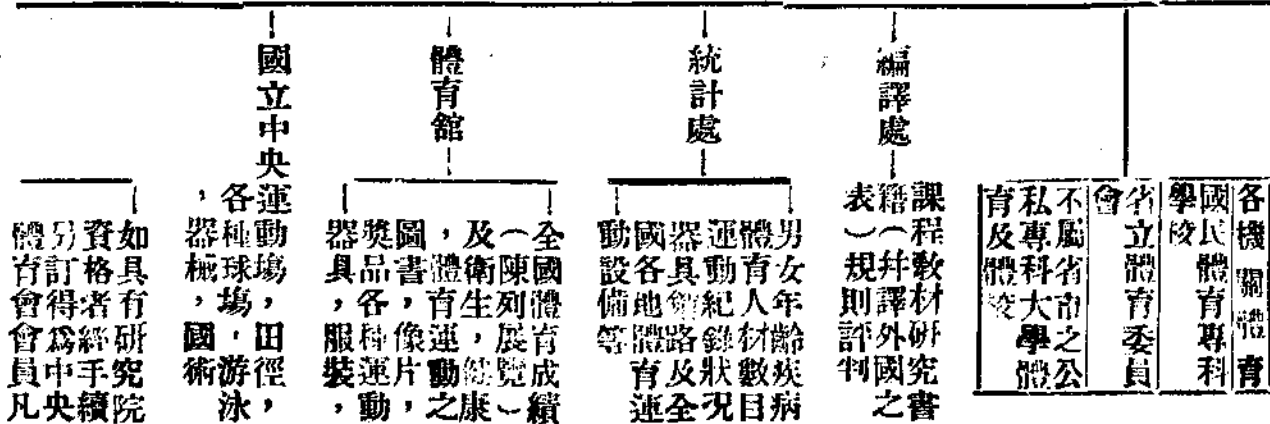 各機關體育
國民體育專科
學校
省立體育委員
會
不屬省市之公
私專科大學體
育及體校
編譯處
課程教材研究書
籍（幷譯外國之
表）規則評判
統計處
男女年齡疾病
體育人材數目
運動紀錄狀況
器具銷路及全
國各地體育運
動設備等
體育舘
全國體育成績
（陳列展覽）
及衛生，健康
，體育運動之
圖書，像片，
獎品各種運動
器具，服裝，
國立中央運動場，田徑，
各種球場，游泳
，器械，國術
如具有研究院
資格者經手續
另訂得爲中央
體育會會員凡